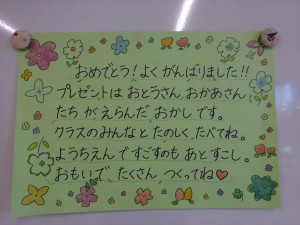 おめでとう！よくがんばりました!!
プレゼントは おとうさん、おかあさん
たち が えらんだ おかし です。
クラスのみんなと たのしく たべてね。
ようちえん で すごすのも あとすこし。
おもいで たくさん つくってね♡